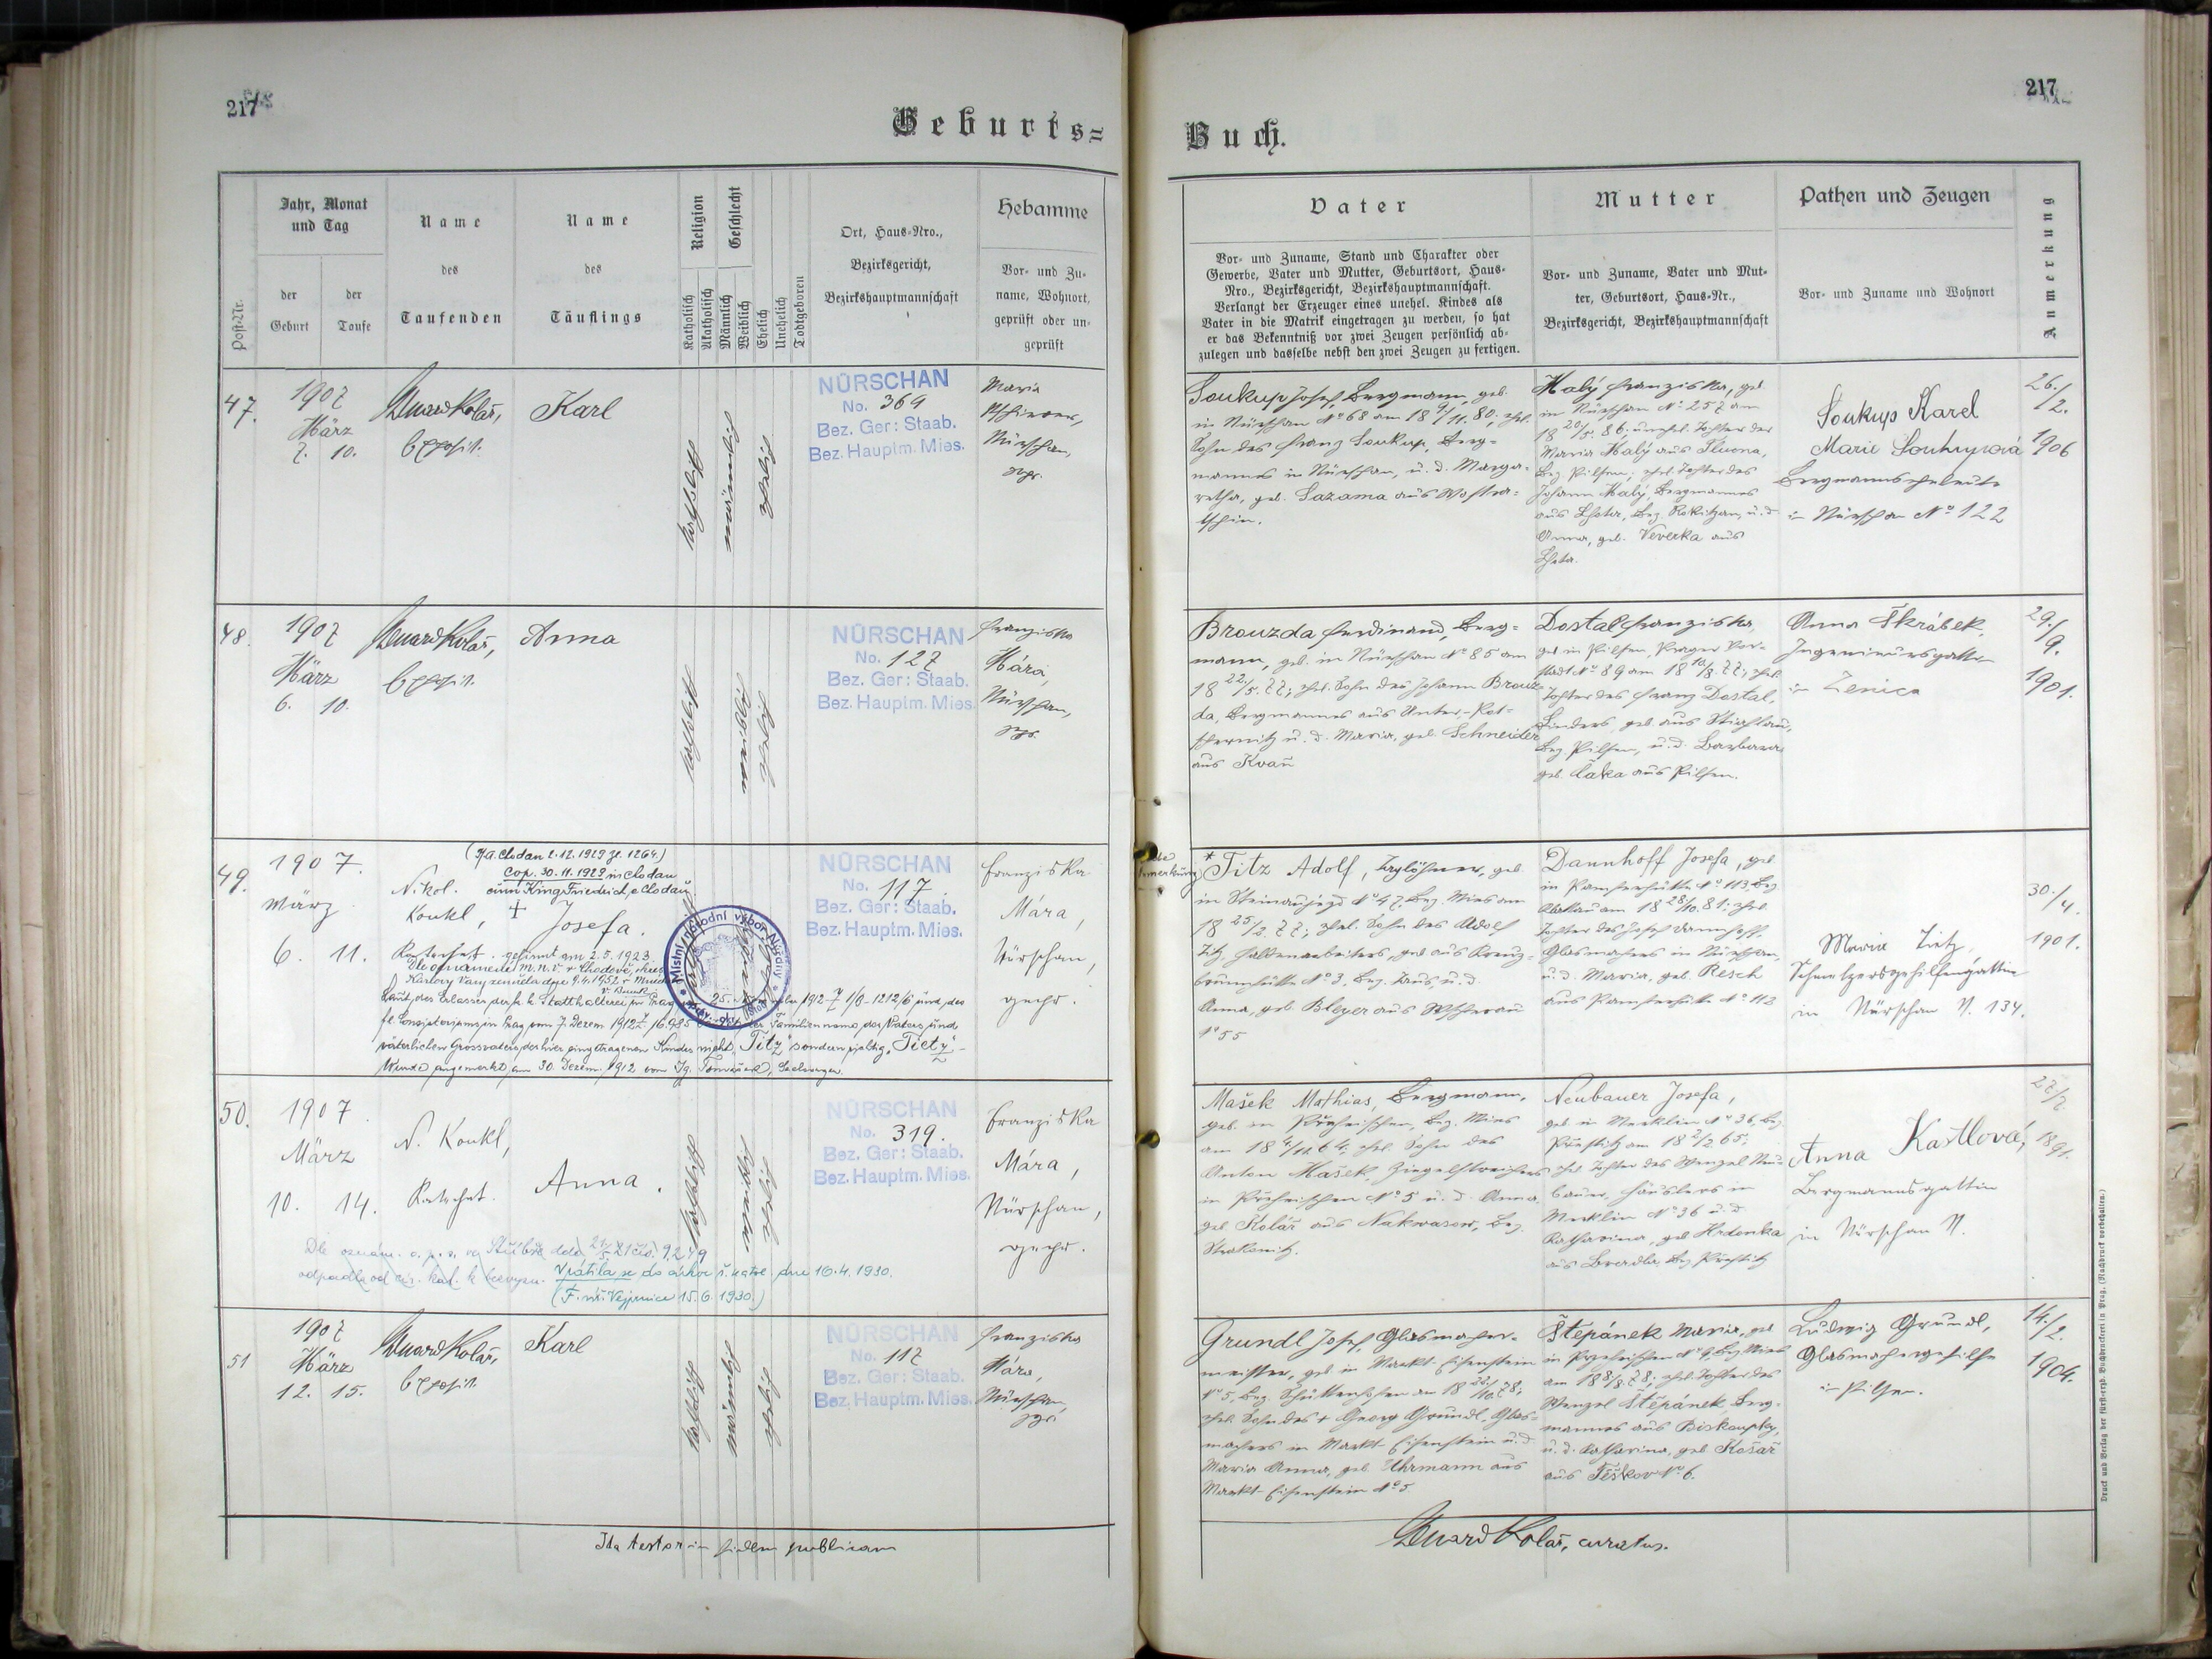 217
Geburts=
Post-Nr.
Jahr, Monat
und Tag
der
Geburt
der
Taufe
Name
des
Taufenden
Name
des
Täuflings
Religion
Katholisch
Akatholisch
Geschlecht
Männlich
Weiblich
Ehelich
Unehelich
Todtgeboren
Ort, Haus-Nro.,
Bezirksgericht,
Bezirkshauptmannschaft
Hebamme
Vor- und Zu-
name, Wohnort,
geprüft oder un-
geprüft
47.
1907
März
7. 10.
Eduard Kolář,
Exposit.
Karl
katholisch
männlich
ehelich
NÜRSCHAN
No. 369
Bez. Ger: Staab.
Bez. Hauptm. Mies.
Maria
Nürschan,
gepr.
48.
1907
März
6. 10.
Eduard Kolář,
Exposit.
Anna
katholisch
weiblich
ehelich
NÜRSCHAN
No. 127
Bez. Ger: Staab.
Bez. Hauptm. Mies.
Franziska
Mára,
Nürschan,
gepr.
49.
1907.
März
6. 11.
(Pfa. Chodau 2.12.1929 Zl. 1264.)
Cop. 30.11.1929 in Chodau
cum King Friedrich, e Chodau
Nikol.
Koukl,
Katechet.
† Josefa.
gefirmt am 2.5.1923.
Dle oznámení M.n.v. v Chodově, okres
Karlovy Vary zemřela dne 9.4.1952 v
Laut des Erlasses der k. k. Statthalterei in Prag 25. 1912 1/8-1212/6 und des
f. e. Consistoriums in Prag vom 7. Dezem. 1912 Z. 16.985 der Familienname des Vaters und
väterlichen Grossvaters des hier eingetragenen Kindes nicht "Titz" sondern richtig "Tietz".-
Wurde angemerkt am 30. Dezem. 1912 vom Ig.
Místní národní výbor Nýřany
NÜRSCHAN
No. 117.
Bez. Ger: Staab.
Bez. Hauptm. Mies.
Franziska
Mára,
Nürschan,
gepr.
50.
1907.
März
10. 14.
N. Koukl,
Katechet.
Anna.
katholisch
weiblich
ehelich
NÜRSCHAN
No. 319.
Bez. Ger: Staab.
Bez. Hauptm. Mies.
Franziska
Mára,
Nürschan,
gepr.
Dle oznám. o. p. s. ve Stříbře ddo 21/5 21 čís. 9249
odpadla od círk. kat. k bezvyzn. Vrátila se do církve ř. katol. dne 16.4.1930.
(F. úř. Vejprnice 15.6.1930.)
51
1907
März
12. 15.
Eduard Kolář,
Exposit.
Karl
katholisch
männlich
ehelich
NÜRSCHAN
No. 117
Bez. Ger: Staab.
Bez. Hauptm. Mies.
Franziska
Mára,
Nürschan,
gepr.
Ita testor in fidem publicam
217
Buch.
Vater
Vor- und Zuname, Stand und Charakter oder
Gewerbe, Vater und Mutter, Geburtsort, Haus-
Nro., Bezirksgericht, Bezirkshauptmannschaft.
Verlangt der Erzeuger eines unehel. Kindes als
Vater in die Matrik eingetragen zu werden, so hat
er das Bekenntniß vor zwei Zeugen persönlich ab-
zulegen und dasselbe nebst den zwei Zeugen zu fertigen.
Mutter
Vor- und Zuname, Vater und Mut-
ter, Geburtsort, Haus-Nr.,
Bezirksgericht, Bezirkshauptmannschaft
Pathen und Zeugen
Vor- und Zuname und Wohnort
Anmerkung
Soukup Josef, Bergmann, geb.
in Nürschan No 68 am 18 9/11. 80; ehel.
Sohn des Franz Soukup, Berg-
mannes in Nürschan, u. d. Marga-
retha, geb. Sazama aus Wostra-
tschin.
Malý Franziska, geb.
in Nürschan No 257 am
18 20/5. 86. unehel. Tochter der
Maria Malý aus
Bez. Pilsen, ehel. Tochter des
Johann Malý, Bergmannes
aus Lhota, Bez. Rokitzan, u. d.
Anna, geb. Veverka aus
Lhota.
Soukup Karel
Marie Soukupová
Bergmannseheleute
in Nürschan No 122
26./2.
1906
Brouzda Ferdinand, Berg-
mann, geb. in Nürschan No 85 am
18 22./5. 77; ehel. Sohn des Johann Brouz-
da, Bergmannes aus Unter-
u. d. Maria, geb. Schneider
aus Kvaň
Dostal Franziska,
geb. in Pilsen, Prager Vor-
stadt No 89 am 18 10/8. 77; ehel.
Tochter des Franz Dostal,
Binders, geb. aus Stiahlau,
Bez. Pilsen, u. d. Barbara
geb. Čáka aus Pilsen.
Anna Škrábek,
Ingenieursgattin
in Zenica
29./9.
1901.
* Titz Adolf, Taglöhner, geb.
in Steinaujezd No 47, Bez. Mies am
18 25/2. 77; ehel. Sohn des Adolf
Titz, Hüttenarbeiters, geb. aus Kreuz-
brunnhütte No 3, Bez. Taus, u. d.
Anna, geb. Bleyer aus
No 55
Dannhoff Josefa, geb.
No 113, Bez.
am 18 28/10. 81; ehel.
Tochter des Josef Dannhoff,
Glasmachers in Nürschan,
u. d. Maria, geb. Resch
No 113
Maria Tietz,
Schmelzersgehilfengattin
in Nürschan N. 134.
30./4.
1901.
Mašek Mathias, Bergmann,
geb. in Bez. Mies
am 18 4/11. 64; ehel. Sohn des
Anton Mašek, Ziegelstreichers
in No 5 u. d. Anna
geb. Kolář aus Nakwasow, Bez.
Strakonitz.
Neubauer Josefa,
geb. in Merklin No 36, Bez.
Přestitz am 18 2/2 65;
ehel. Tochter des Wenzel Neu-
bauer, Häuslers in
Merklin No 36 u. d.
Katharina, geb. Hrdonka
Bez. Přestitz
Anna Kastlová,
Bergmannsgattin
in Nürschan N.
1891.
Grundl Josef, Glasmacher-
meister, geb. in Markt-Eisenstein
No 5, Bez. Schüttenhofen am 18 22./10. 78;
ehel. Sohn des † Georg Grundl, Glas-
machers in Markt-Eisenstein u. d.
Maria Anna, geb. Uhrmann aus
Markt-Eisenstein No 5
Štěpánek Maria, geb.
in No 9, Bez. Mies
am 18 8/8. 78; ehel. Tochter des
Wenzel Štěpánek, Berg-
mannes aus Biskoupky,
u. d. Katharina, geb. Košař
aus Těškov No 6.
Ludwig Grundl,
Glasmachergehilfe
in Pilsen.
14./2.
1904.
Eduard Kolář, curatus.
Druck und Verlag der fürst-erzb. Buchdruckerei in Prag. (Nachdruck vorbehalten.)